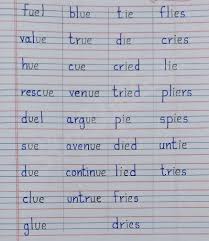 fuel blue tie flies
value true die cries
hue cue cried lie
rescue venue tried pliers
duel argue pie spies
sue avenue died untie
due continue lied tries
clue untrue fries
glue dries